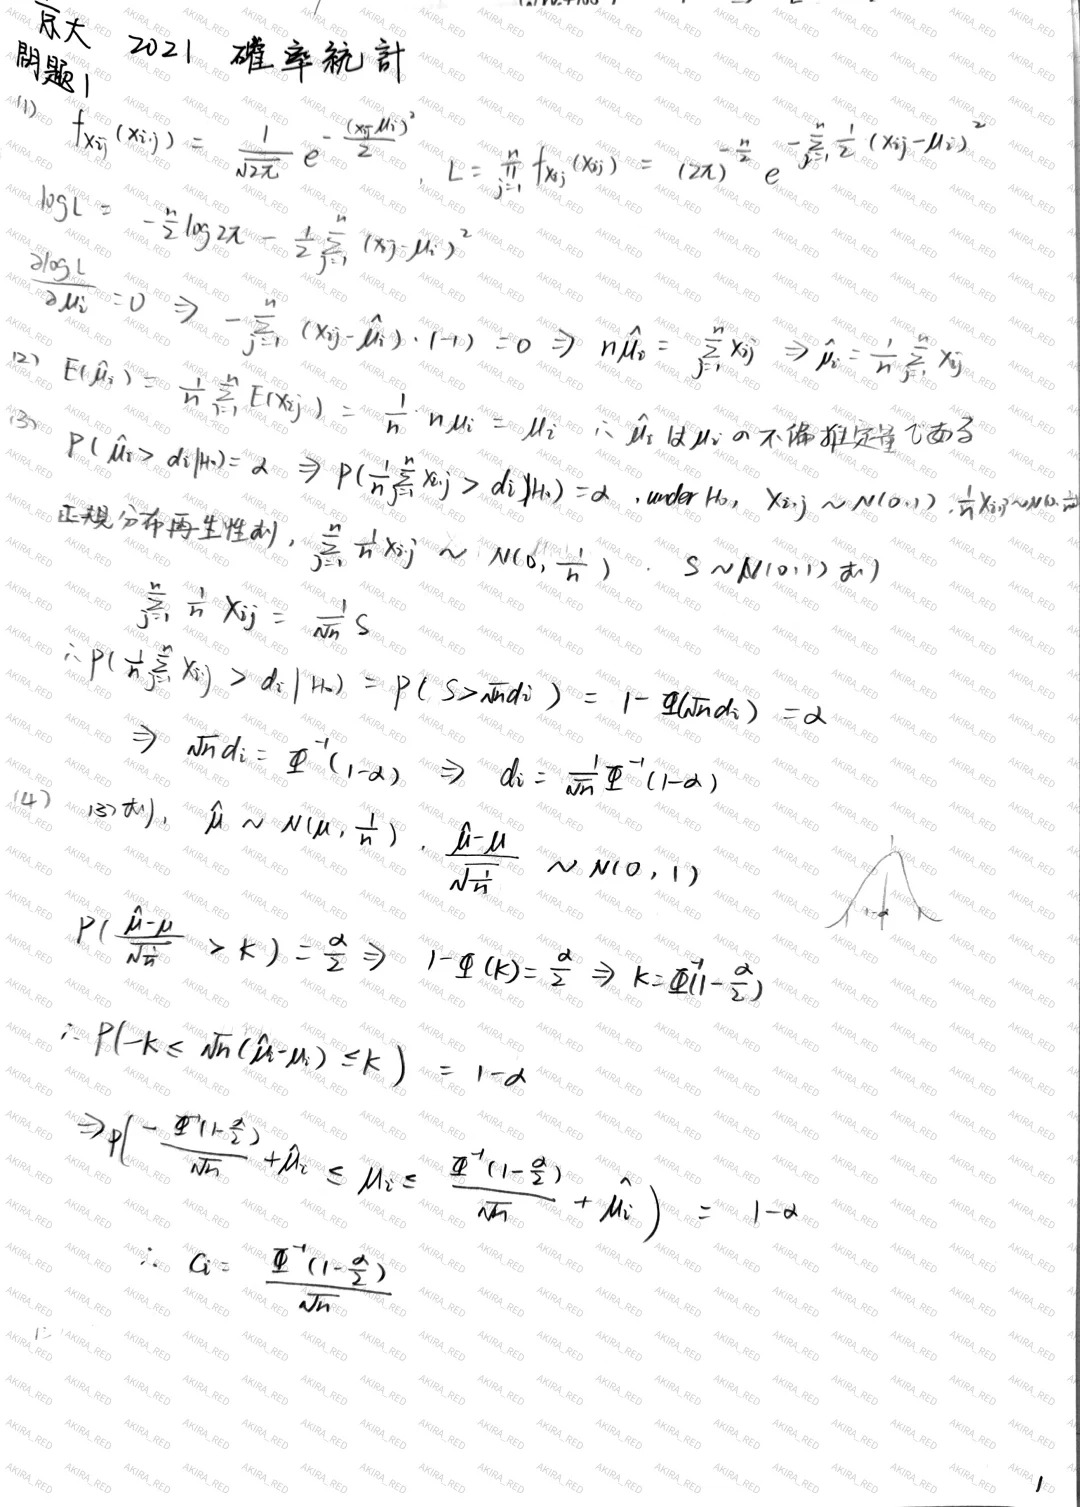 京大 2021 確率統計
問題1
(1) f_{Xij}(xij) = \frac{1}{\sqrt{2π}} e^{-\frac{(xij-μi)^2}{2}} , L = \prod_{j=1}^{n} f_{Xij}(xij) = (2π)^{-\frac{n}{2}} e^{-\sum_{j=1}^{n} \frac{1}{2}(xij-μi)^2}
logL = -\frac{n}{2} log2π - \frac{1}{2} \sum_{j=1}^{n} (xij-μi)^2
\frac{∂logL}{∂μi} = 0 ⇒ -\sum_{j=1}^{n} (xij-\hat{μ}i)・(-1) = 0 ⇒ n\hat{μ}i = \sum_{j=1}^{n} xij ⇒ \hat{μ}i = \frac{1}{n} \sum_{j=1}^{n} xij
(2) E(\hat{μ}i) = \frac{1}{n} \sum_{j=1}^{n} E(Xij) = \frac{1}{n} nμi = μi ∴ \hat{μ}i は μi の不偏推定量である
(3) P(\hat{μ}i > di|H0) = α ⇒ P(\frac{1}{n} \sum_{j=1}^{n} Xij > di|H0) = α , under H0, Xij ~ N(0,1) , \frac{1}{n} Xij ~ N(0,
正規分布再生性より, \sum_{j=1}^{n} \frac{1}{n} Xij ~ N(0, \frac{1}{n}) . S ~ N(0,1) より
\sum_{j=1}^{n} \frac{1}{n} Xij = \frac{1}{\sqrt{n}} S
∴ P(\frac{1}{n} \sum_{j=1}^{n} Xij > di|H0) = P(S > \sqrt{n}di) = 1 - Φ(\sqrt{n}di) = α
⇒ \sqrt{n}di = Φ^{-1}(1-α) ⇒ di = \frac{1}{\sqrt{n}} Φ^{-1}(1-α)
(4) (3)より, \hat{μ} ~ N(μ, \frac{1}{n}) . \frac{\hat{μ}-μ}{\sqrt{\frac{1}{n}}} ~ N(0,1)
1-α
P(\frac{\hat{μ}-μ}{\sqrt{\frac{1}{n}}} > K) = \frac{α}{2} ⇒ 1-Φ(K) = \frac{α}{2} ⇒ K = Φ^{-1}(1-\frac{α}{2})
∴ P(-K ≤ \sqrt{n}(\hat{μ}i-μi) ≤ K) = 1-α
⇒ P(-\frac{Φ^{-1}(1-\frac{α}{2})}{\sqrt{n}} + \hat{μ}i ≤ μi ≤ \frac{Φ^{-1}(1-\frac{α}{2})}{\sqrt{n}} + \hat{μ}i) = 1-α
∴ Ci = \frac{Φ^{-1}(1-\frac{α}{2})}{\sqrt{n}}
1
AKIRA_RED